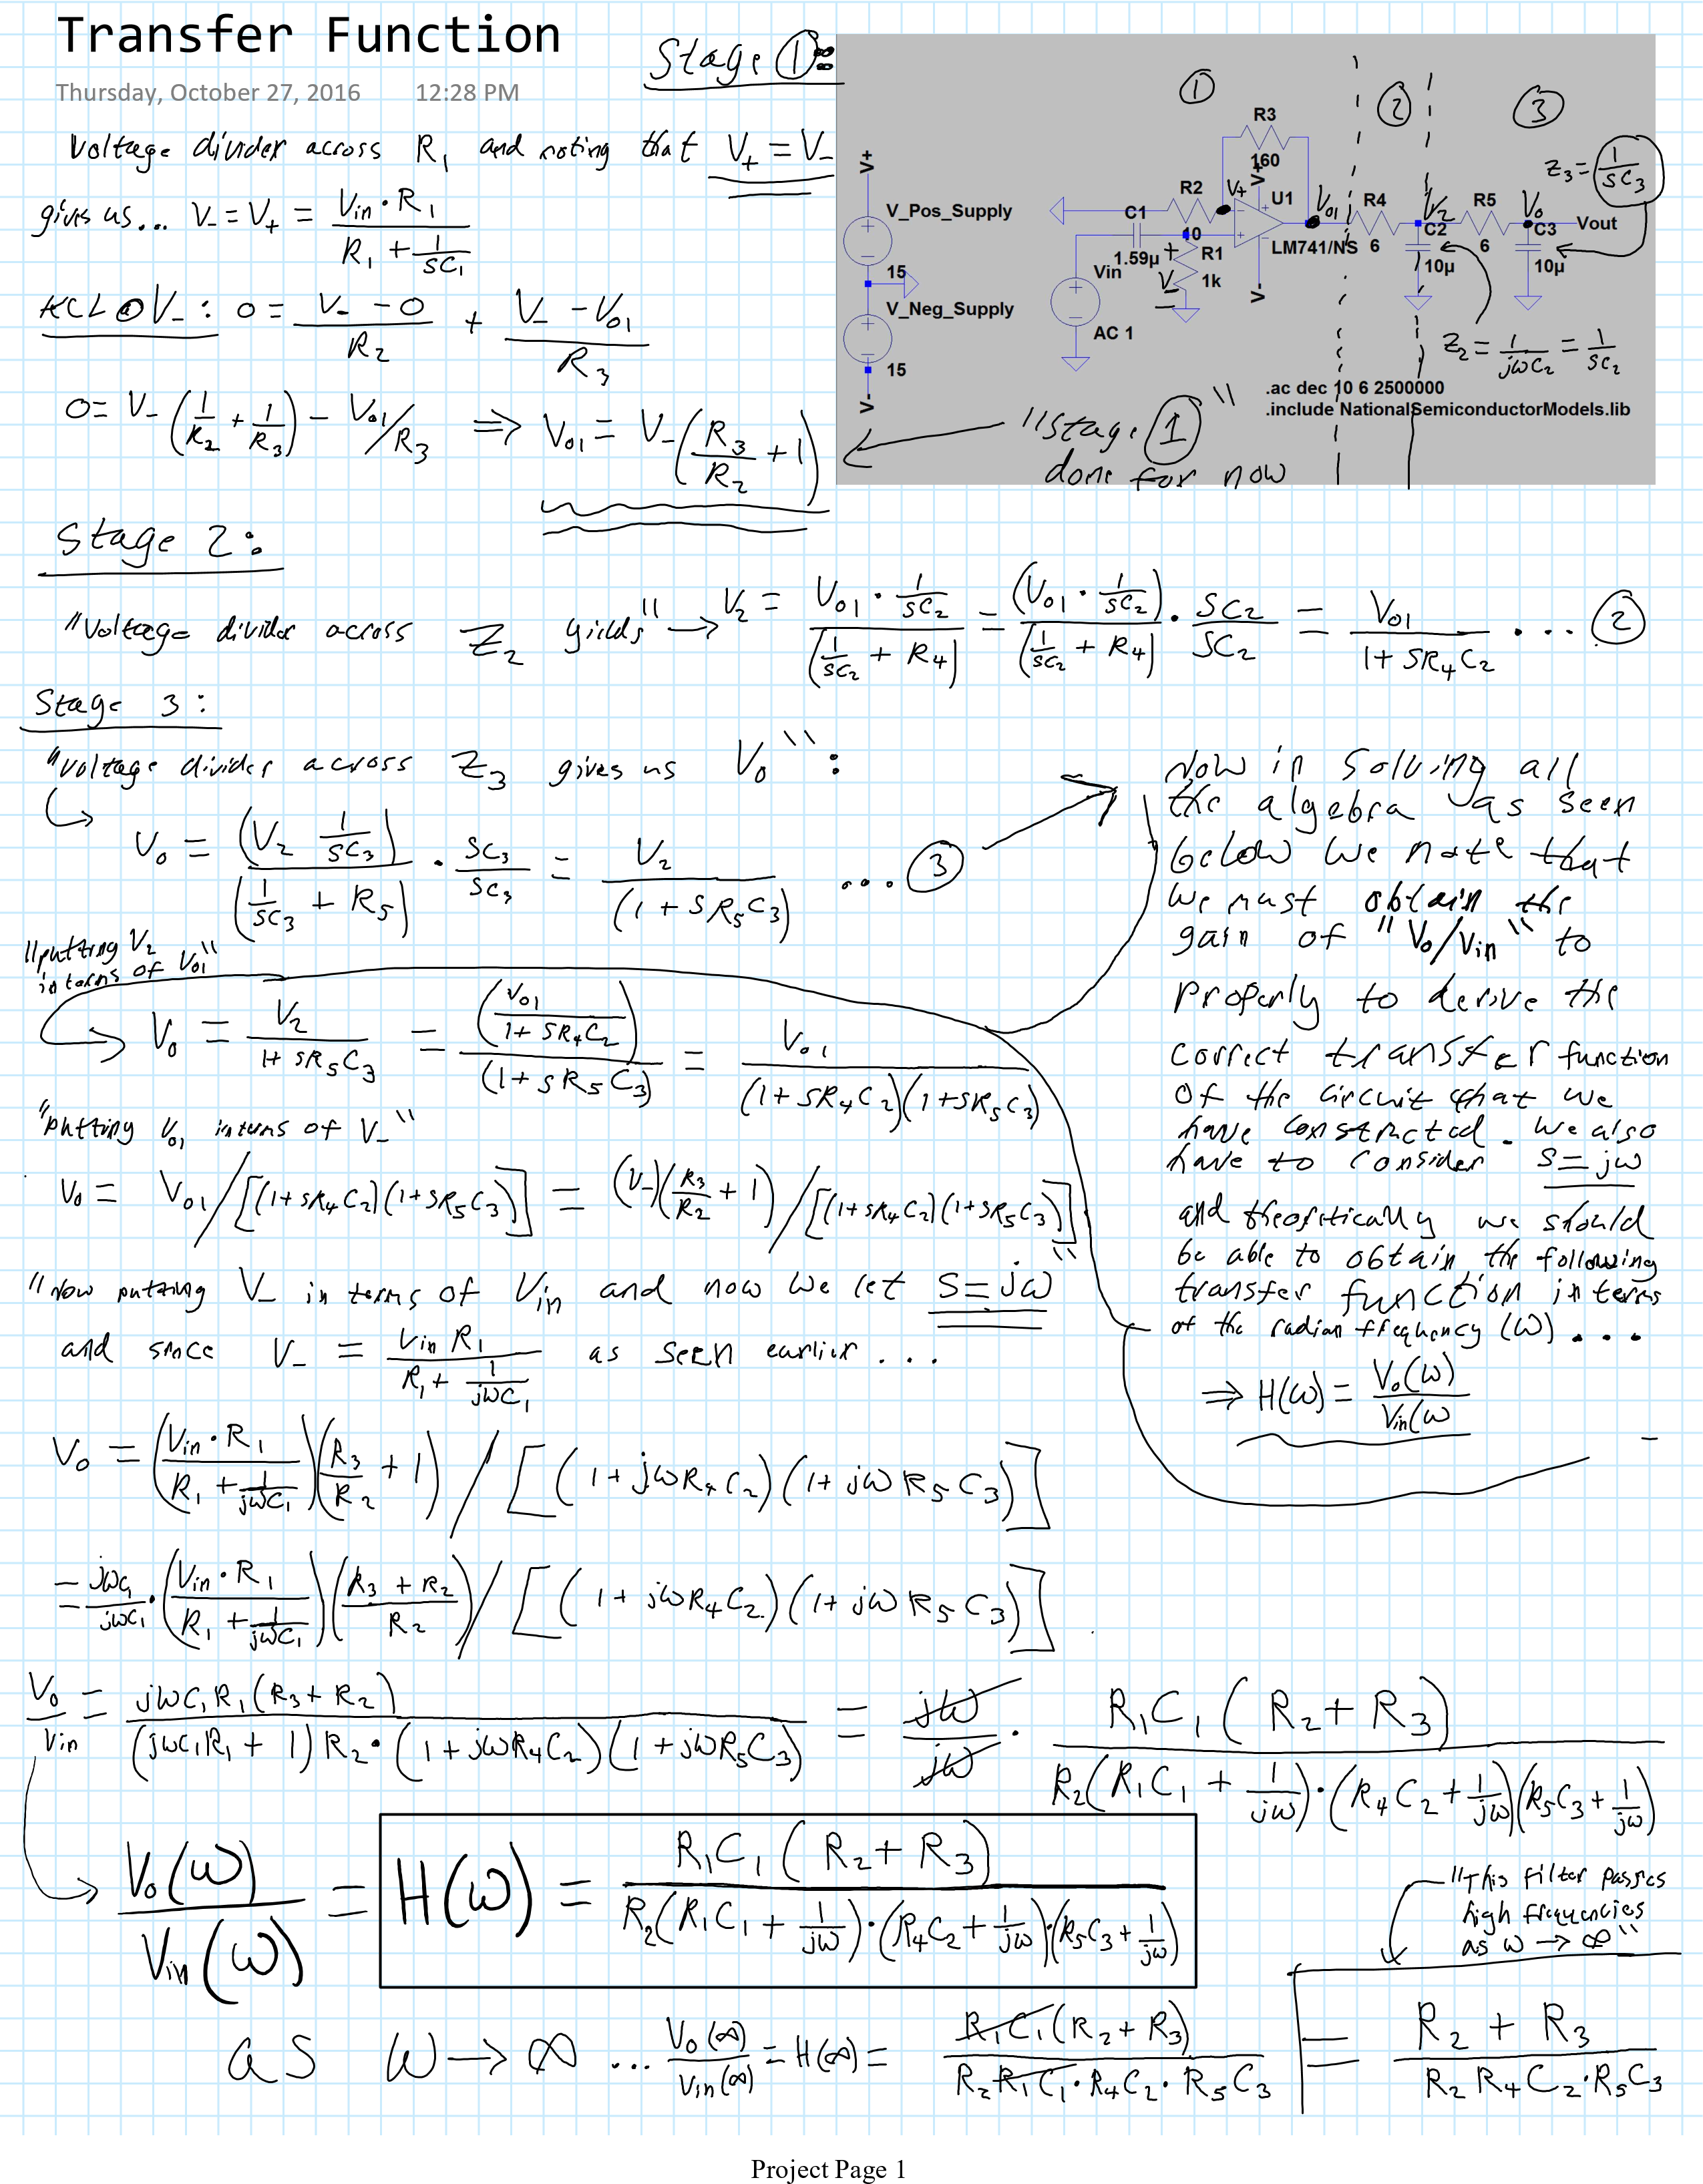 Transfer Function
Thursday, October 27, 2016 12:28 PM
Stage ①:
Voltage divider across R₁ and noting that V₊ = V₋
gives us... V₋ = V₊ = Vin · R₁ / (R₁ + 1/sC₁)
KCL @ V₋ : 0 = (V₋ - 0)/R₂ + (V₋ - V₀₁)/R₃
0 = V₋ (1/R₂ + 1/R₃) - V₀₁/R₃ ⇒ V₀₁ = V₋ (R₃/R₂ + 1)
① ② ③
R3
160
V+
V+
R2
V₊
U1
V₀₁
R4
V₂
R5
V₀
Z₃ = 1/sC₃
V_Pos_Supply
C1
10
LM741/NS
6
C2
6
C3
Vout
1.59µ
+
R1
1k
V₋
10µ
10µ
15
Vin
V-
V_Neg_Supply
AC 1
Z₂ = 1/jωC₂ = 1/sC₂
15
V-
.ac dec 10 6 2500000
.include NationalSemiconductorModels.lib
"Stage ①"
done for now
Stage 2:
"Voltage divider across Z₂ yields" → V₂ = V₀₁ · 1/sC₂ / (1/sC₂ + R₄) = (V₀₁ · 1/sC₂) / (1/sC₂ + R₄) · sC₂/sC₂ = V₀₁ / (1 + sR₄C₂) ... ②
Stage 3:
"Voltage divider across Z₃ gives us V₀":
V₀ = (V₂ 1/sC₃) / (1/sC₃ + R₅) · sC₃/sC₃ = V₂ / (1 + sR₅C₃) ... ③
"putting V₂
in terms of V₀₁"
V₀ = V₂ / (1 + sR₅C₃) = (V₀₁ / (1 + sR₄C₂)) / (1 + sR₅C₃) = V₀₁ / (1 + sR₄C₂)(1 + sR₅C₃)
"putting V₀₁ in terms of V₋"
V₀ = V₀₁ / [(1+sR₄C₂)(1+sR₅C₃)] = (V₋)(R₃/R₂ + 1) / [(1+sR₄C₂)(1+sR₅C₃)]
"Now putting V₋ in terms of Vin and now we let s = jω"
and since V₋ = Vin R₁ / (R₁ + 1/jωC₁) as seen earlier ...
V₀ = (Vin · R₁ / (R₁ + 1/jωC₁)) (R₃/R₂ + 1) / [(1 + jωR₄C₂)(1 + jωR₅C₃)]
= jωC₁/jωC₁ · (Vin · R₁ / (R₁ + 1/jωC₁)) ((R₃ + R₂)/R₂) / [(1 + jωR₄C₂)(1 + jωR₅C₃)]
Now in solving all
the algebra as seen
below we note that
we must obtain the
gain of "V₀/Vin" to
properly to derive the
correct transfer function
of the circuit that we
have constructed. We also
have to consider s = jω
and theoritically we should
be able to obtain the following
transfer function in terms
of the radian frequency (ω) ....
⇒ H(ω) = V₀(ω) / Vin(ω
V₀/Vin = jωC₁R₁(R₃ + R₂) / (jωC₁R₁ + 1)R₂ · (1 + jωR₄C₂)(1 + jωR₅C₃) = jω/jω · R₁C₁(R₂ + R₃) / R₂(R₁C₁ + 1/jω)·(R₄C₂ + 1/jω)(R₅C₃ + 1/jω)
V₀(ω)/Vin(ω) = H(ω) = R₁C₁(R₂ + R₃) / R₂(R₁C₁ + 1/jω)·(R₄C₂ + 1/jω)·(R₅C₃ + 1/jω)
"This filter passes
high frequencies
as ω → ∞"
as ω → ∞ ... V₀(∞)/Vin(∞) = H(∞) = R₁C₁(R₂ + R₃) / R₂R₁C₁·R₄C₂·R₅C₃ = (R₂ + R₃) / R₂R₄C₂·R₅C₃
Project Page 1